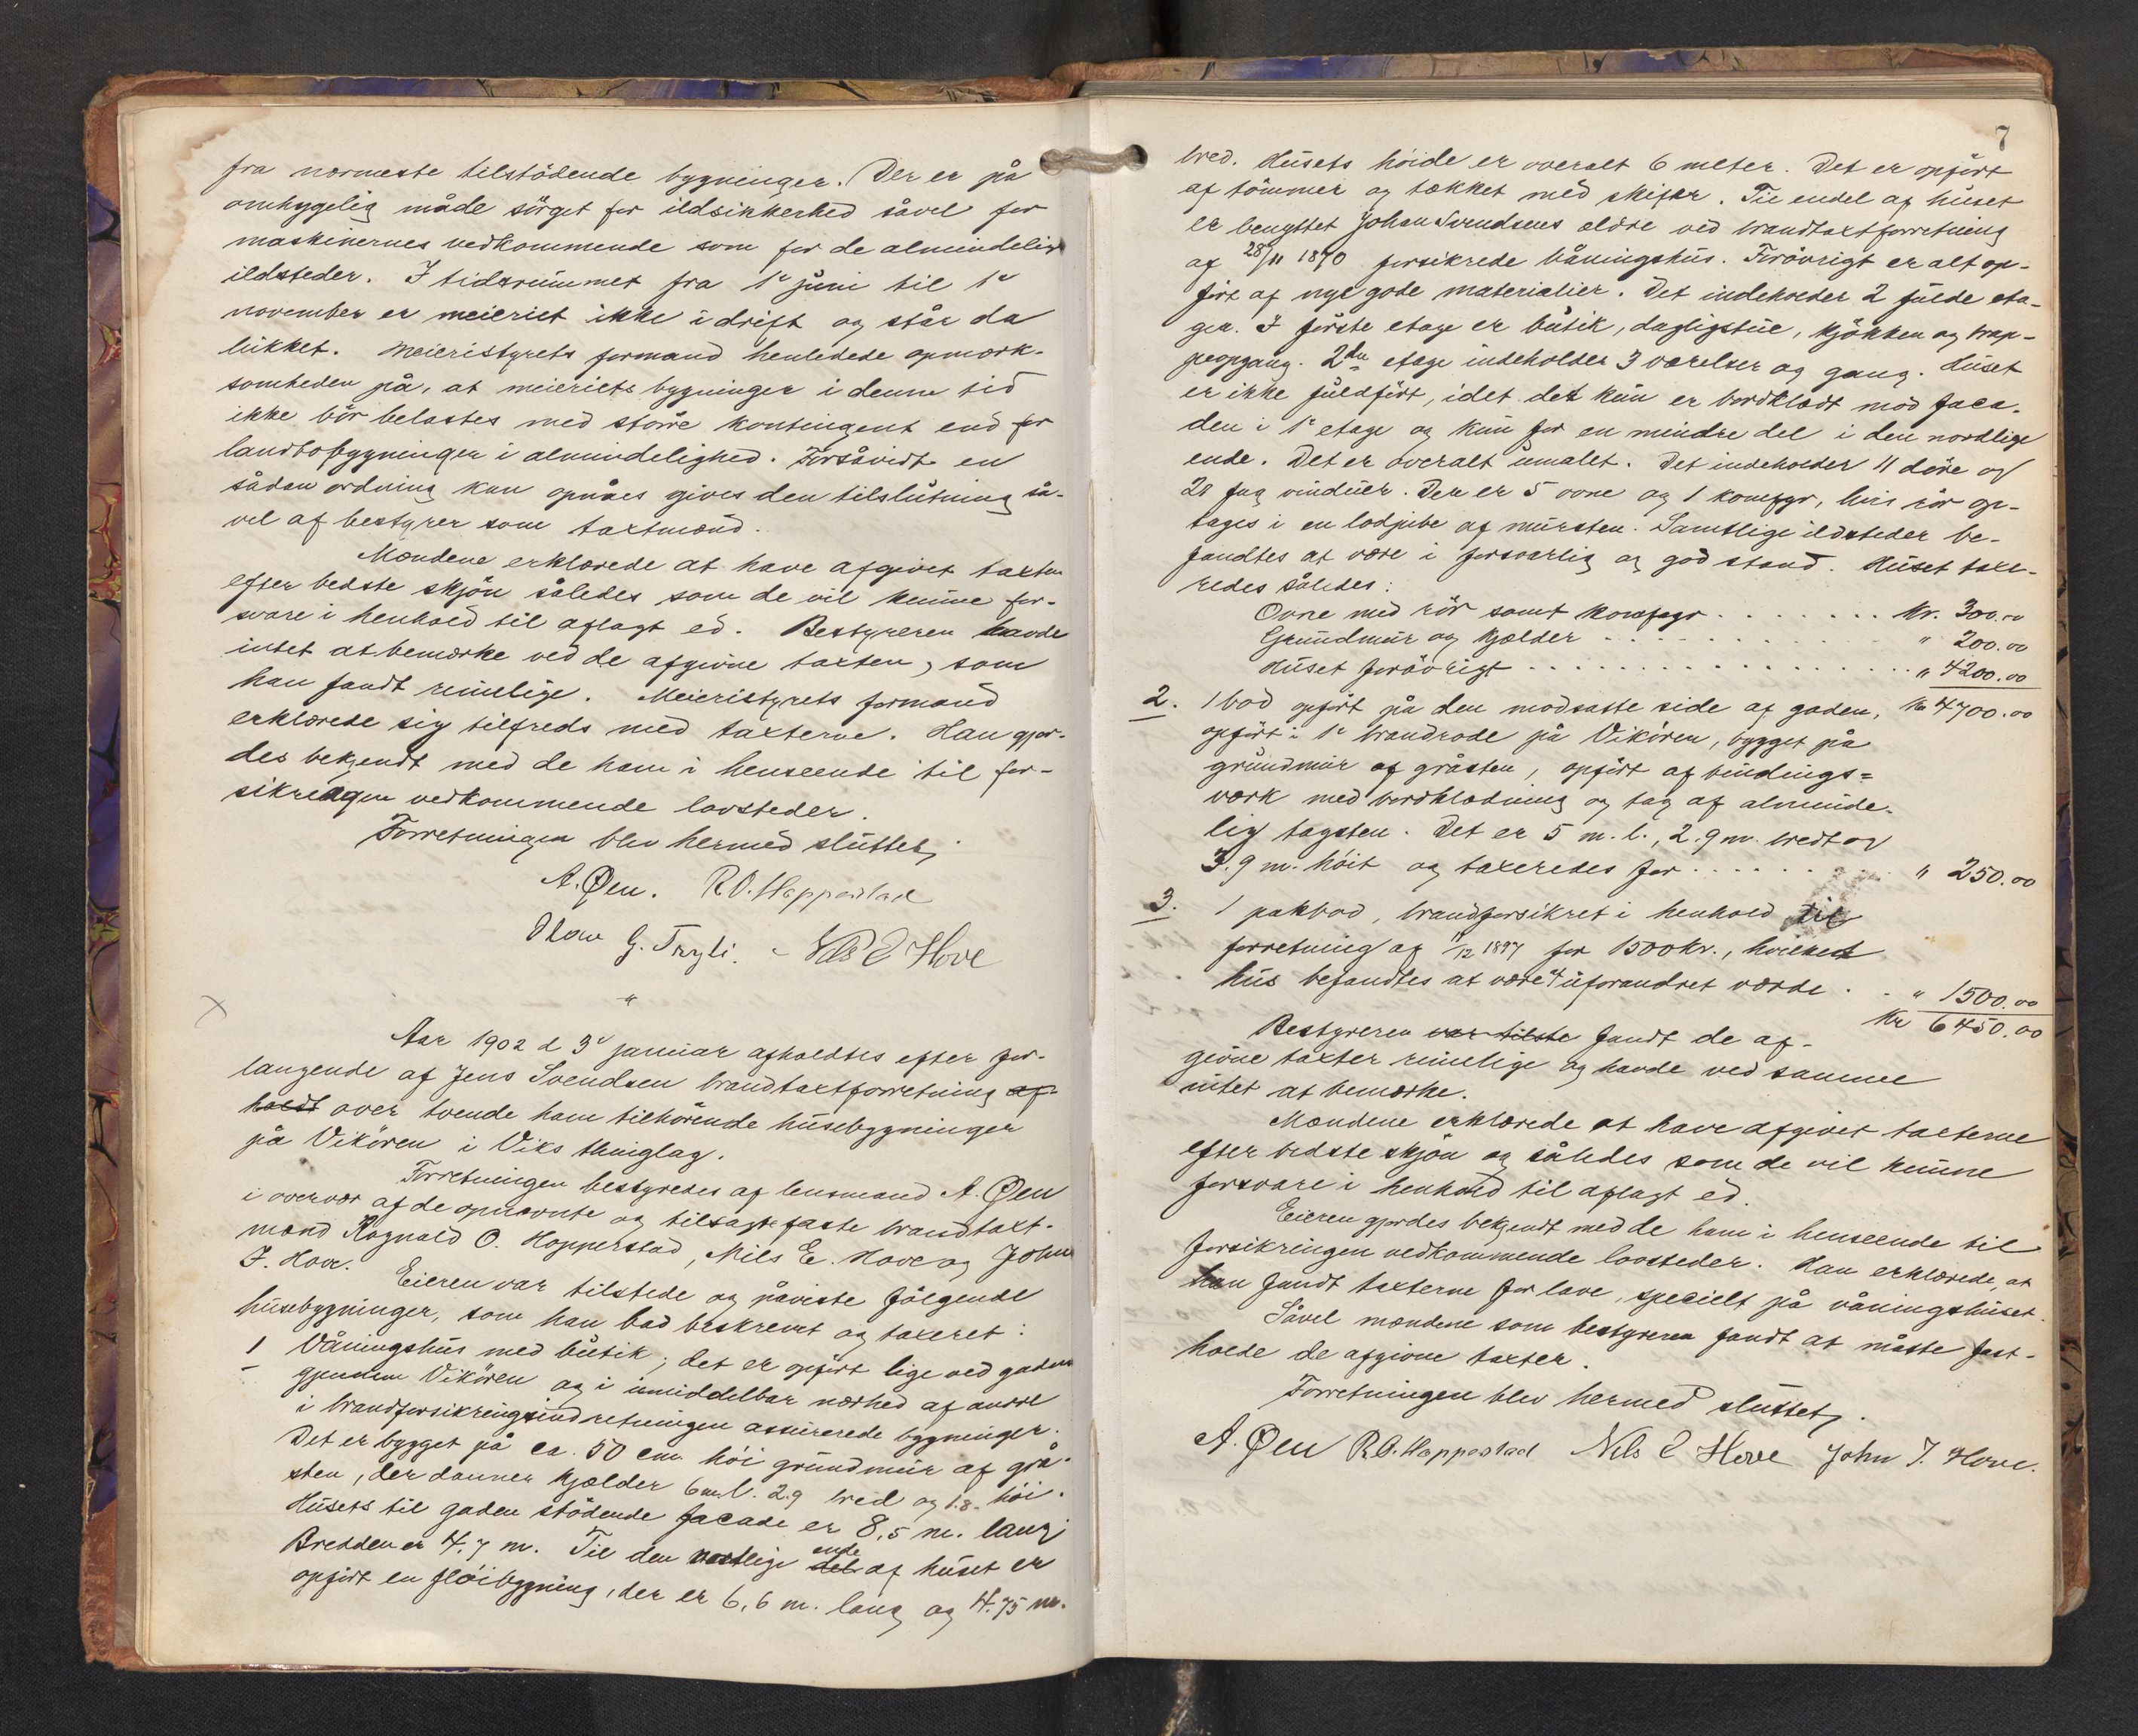 fra nærmeste tilstödende bygninger. Der er på
omhygelig måde sörget for ildsikkerhed såvel for
maskinernes vedkommende som for de almindelige
ildsteder. I tidsrummet fra 1ᵉ juni til 1ᵉ
november er meieriet ikke i drift og står da
lukket. Meieristyrets formand henledede opmærk-
somheden på, at meieriets bygninger i denne tid
ikke bör belastes med större kontingent end for
landbobygninger i almindelighed. Forsåvidt en
sådan ordning kan opnåes gives den tilslutning så-
vel af bestyrer som taxtmænd.
Mændene erklærede at have afgivet taxten
efter bedste skjön således som de vil kunne for-
svare i henhold til aflagt ed. Bestyreren havde
intet at bemærke ved de afgivne taxter, som
han fandt rimelige. Meieristyrets formand
erklærede sig tilfreds med taxterne. Han gjor-
des bekjendt med de ham i henseende til for-
sikringen vedkommende lovsteder.
Forretningen blev hermed sluttet,
A. Øen. R. O. Hopperstad
Olav G. Tryli. Nils E Hove
"
Aar 1902 d 3ᵉ januar afholdtes efter for-
langende af Jens Svendsen brandtaxtforretning af-
holdt over tvende ham tilhörende husebygninger
på Vikören i Viks thinglag.
Forretningen bestyredes af lensmand A. Øen
i overvær af de opnævnte og tilsagte faste brandtaxt-
mænd Ragnald O. Hopperstad, Nils E. Hove og John
J. Hove. Eieren var tilstede og påviste fölgende
husebygninger, som han bad beskrevet og taxeret:
1 Våningshus med butik; det er opfört lige ved gaden
gjennem Vikören og i umiddelbar nærhed af andre
i brandforsikringsindretningen assurerede bygninger.
Det er bygget på ca. 50 cm. höi grundmur af grå-
sten, der danner kjælder 6 m. l. 2.9 bred og 1.8. höi.
Husets til gaden stödende facade er 8,5 m. lang
Bredden er 4.7 m. Til den vestlige del ende af huset er
opfört en flöibygning, der er 6,6 m. lang og 4.75 m.
7
bred. Husets höide er overalt 6 meter. Det er opfört
af tömmer og tækket med skifer. Til endel af huset
er benyttet Johan Svendsens ældre ved brandtaxtforretning
af 28/11 1890 forsikrede våningshus. Forövrigt er alt op-
fört af nye gode materialier. Det indeholder 2 fulde eta-
ger. I förste etage er butik, dagligstue, kjökken og trap-
peopgang. 2den etage indeholder 3 værelser og gang. Huset
er ikke fuldfört, idet det kun er bordklædt mod faca-
den i 1ᵉ etage og kun for en mindre del i den nordlige
ende. Det er overalt umalet. Det indeholder 11 döre og
28 fag vinduer. Der er 5 ovne og 1 komfyr, hvis rör op-
tages i en lodpibe af mursten. Samtlige ildsteder be-
fandtes at være i forsvarlig og god stand. Huset taxe-
redes således:
Ovne med rör samt komfyr . . . . . . . . Kr. 300.00
Grundmur og kjælder . . . . . . . . " 200.00
Huset forövrigt . . . . . . . . . . . . " 4200.00
2. 1 bod opfört på den modsatte side af gaden, Kr 4700.00
opfört i 1ᵉ brandrode på Vikören, bygget på
grundmur af gråsten, opfört af bindings=
værk med bordklædning og tag af alminde-
lig tagsten. Det er 5 m. l., 2.9 m. bredt og
3.9 m. höit og taxeredes for . . . . . . " 250.00
3. 1 pakbod, brandforsikret i henhold til
forretning af 11/12 1897 for 1500 kr., hvilket
hus befandtes at være af uforandret værde . . " 1500.00
Kr 6450.00
Bestyreren var tilste fandt de af-
givne taxter rimelige og havde ved samme
intet at bemærke.
Mændene erklærede at have afgivet taxterne
efter bedste skjön og således som de vil kunne
forsvare i henhold til aflagt ed.
Eieren gjordes bekjendt med de ham i henseende til
forsikringen vedkommende lovsteder. Han erklærede, at
han fandt taxterne for lave, specielt på våningshuset.
Såvel mændene som bestyreren fandt at måtte fast-
holde de afgivne taxter.
Forretningen blev hermed sluttet,
A. Øen R. O. Hopperstad Nils E Hove John J. Hove.